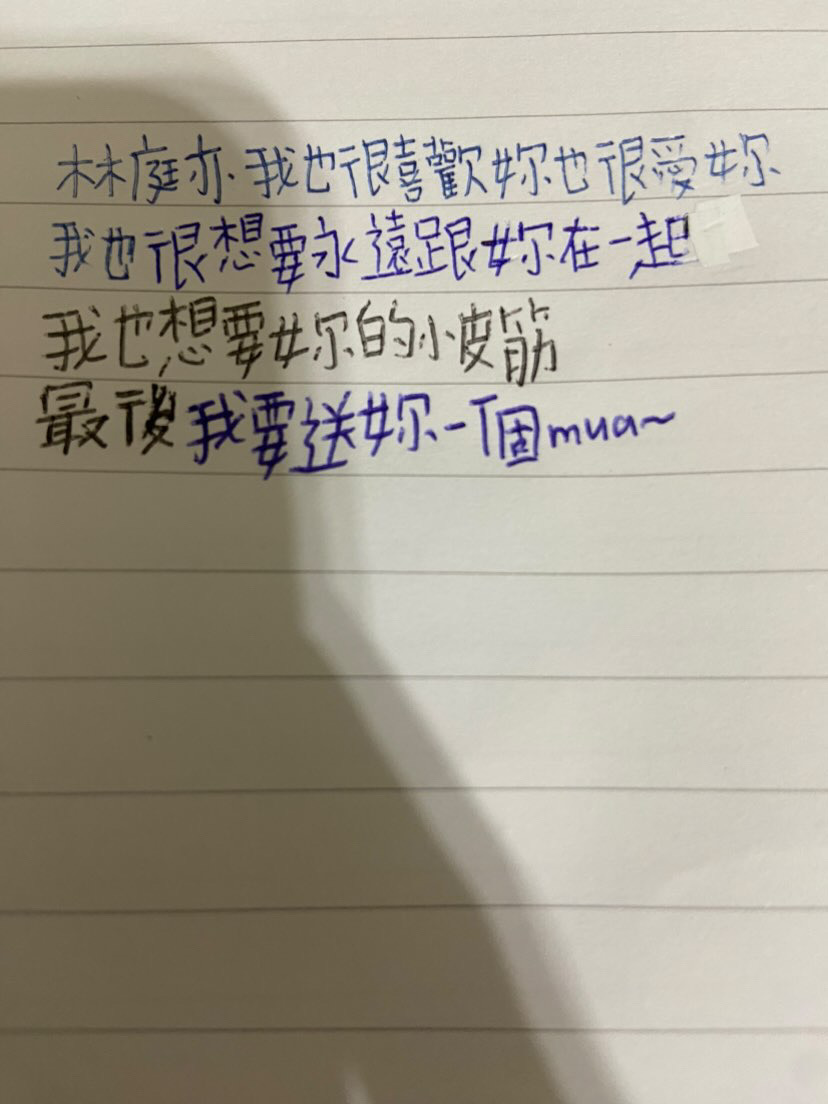 林庭亦.我也很喜歡妳也很愛妳
我也很想要永遠跟妳在一起
我也想要妳的小皮筋
最後我要送妳一個mua~